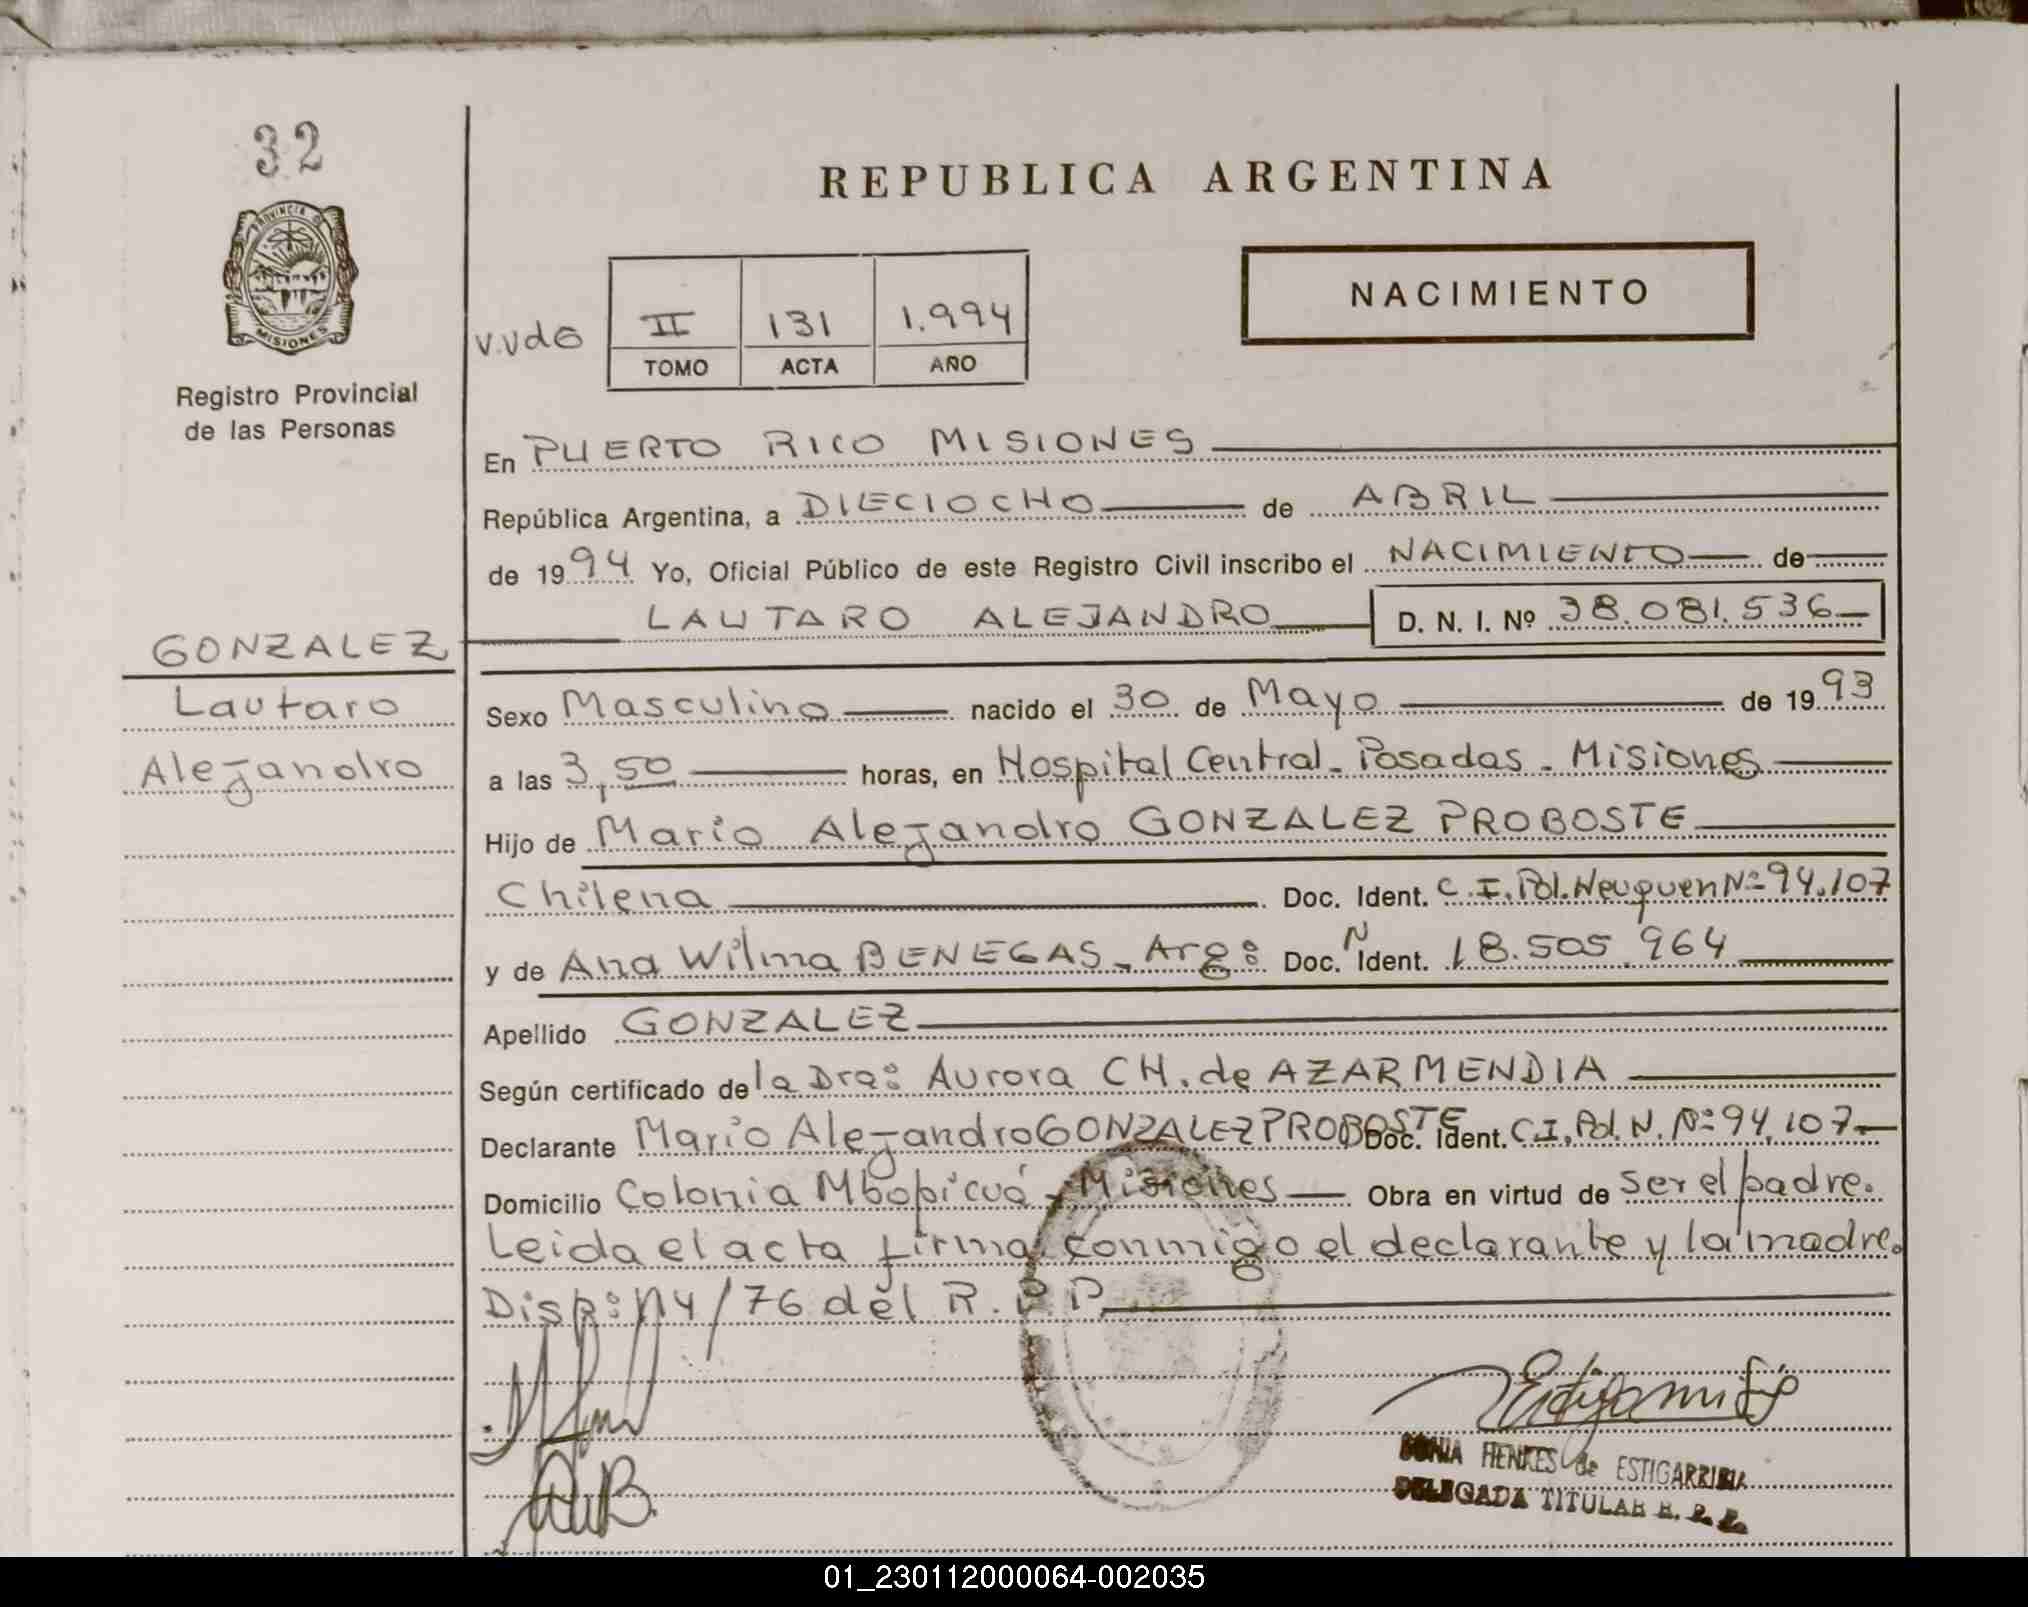 32
PROVINCIA DE
MISIONES
Registro Provincial
de las Personas
REPUBLICA ARGENTINA
NACIMIENTO
II 131 1.994
TOMO ACTA AÑO
En PUERTO RICO MISIONES
República Argentina, a DIECIOCHO de ABRIL
de 1994 Yo, Oficial Público de este Registro Civil inscribo el NACIMIENTO de
LAUTARO ALEJANDRO D. N. I. Nº 38.081.536
GONZALEZ
Lautaro
Alejandro
Sexo Masculino nacido el 30 de Mayo de 1993
a las 3,50 horas, en Hospital Central - Posadas - Misiones
Hijo de Mario Alejandro GONZALEZ PROBOSTE
Chilena Doc. Ident. C.I. Pol. Neuquen Nº 94.107
y de Ana Wilma BENEGAS - Arg: Doc. N Ident. 18.505.964
Apellido GONZALEZ
Según certificado de la Dra: Aurora CH. de AZARMENDIA
Declarante Mario Alejandro GONZALEZ PROBOSTE Doc. Ident. C.I. Pol. N. Nº 94.107
Domicilio Colonia Mbopicuá - Misiones Obra en virtud de ser el padre.
Leida el acta firma conmigo el declarante y la madre.
Disp: 114/76 del R.P.P.
SONIA HENKES de ESTIGARRIBIA
DELEGADA TITULAR R. P. P.
01_230112000064-002035